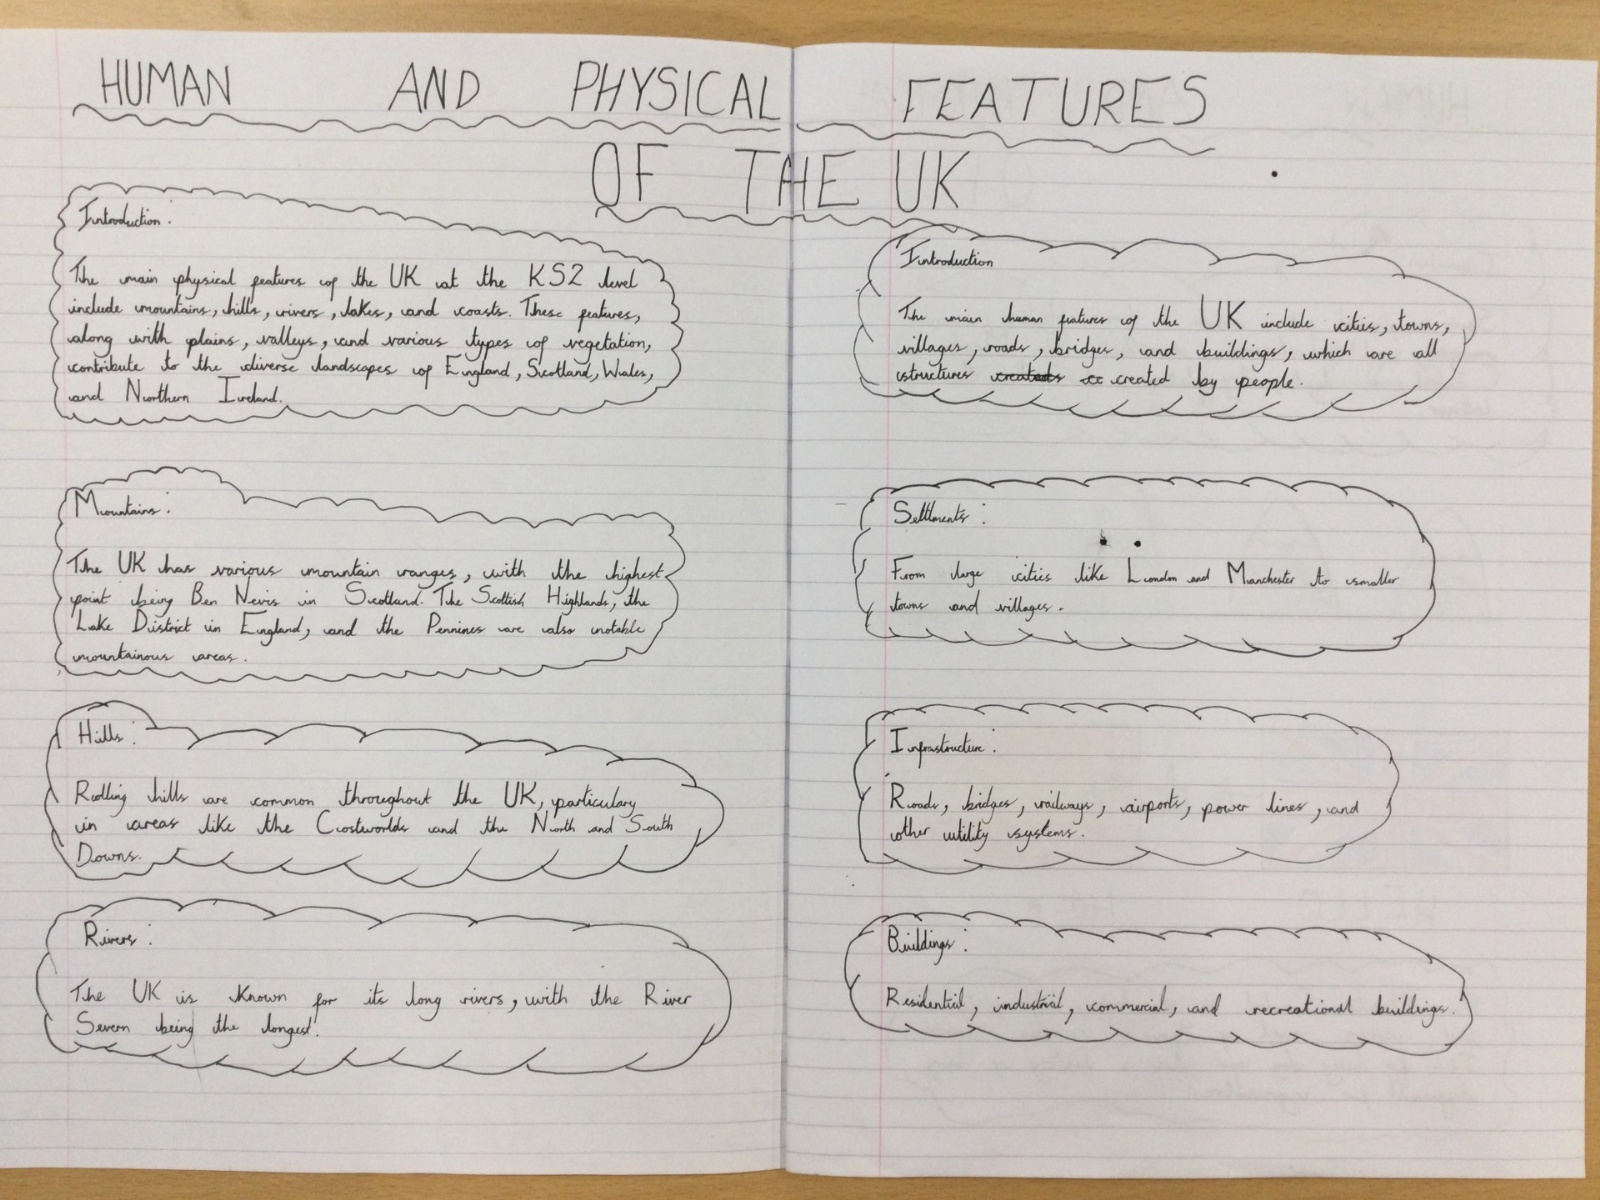 HUMAN AND PHYSICAL FEATURES
OF THE UK
Introduction:
The main physical features of the UK at the KS2 level
include mountains, hills, rivers, lakes, and coasts. These features,
along with plains, valleys, and various types of vegetation,
contribute to the diverse landscapes of England, Scotland, Wales,
and Northern Ireland.
Mountains:
The UK has various mountain ranges, with the highest
point being Ben Nevis in Scotland. The Scottish Highlands, the
Lake District in England, and the Pennines are also notable
mountainous areas.
Hills:
Rolling hills are common throughout the UK, particulary
in areas like the Costworlds and the North and South
Downs.
Rivers:
The UK is known for its long rivers, with the River
Severn being the longest.
Introduction
The main human features of the UK include cities, towns,
villages, roads, bridges, and buildings, which are all
structures created by people.
Settlments:
From large cities like London and Manchester to smaller
towns and villages.
Infrastructure:
Roads, bridges, railways, airports, power lines, and
other utility systems.
Buildings:
Residential, industrial, commercial, and recreational buildings.